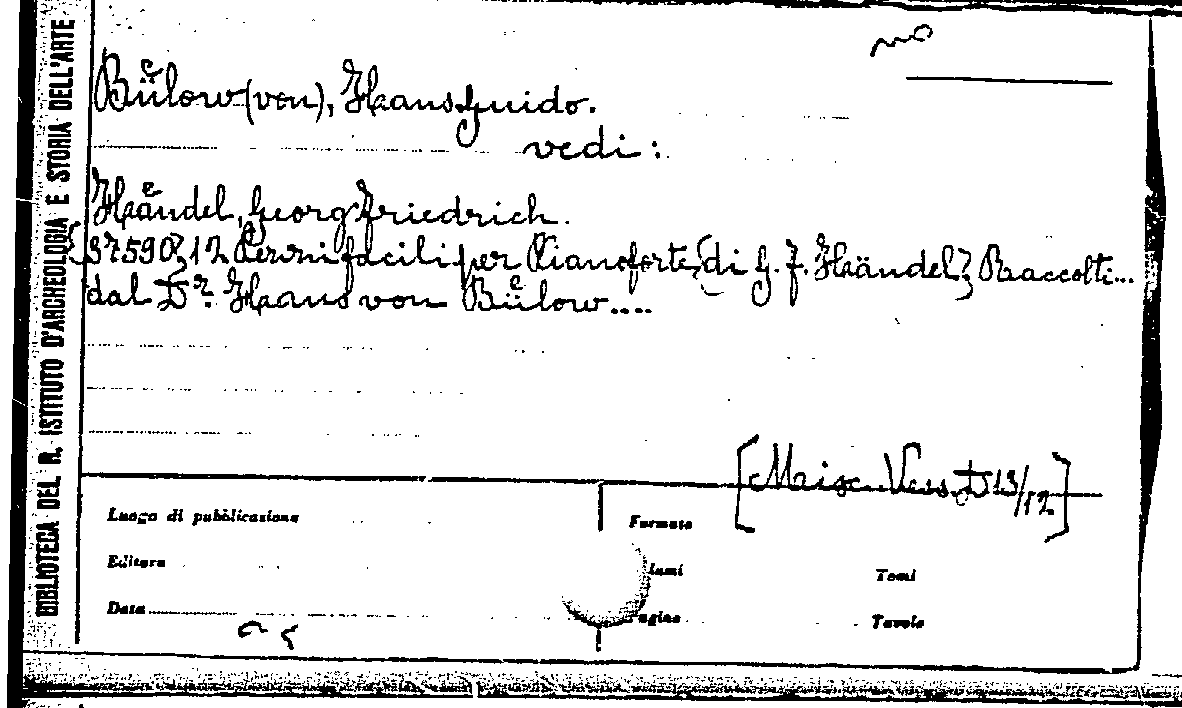 BIBLIOTECA DEL R. ISTITUTO D'ARCHEOLOGIA E STORIA DELL'ARTE
Bülow (von), Haans Guido.
vedi:
Haändel, Georg Friedrich.
[37590] 12 Pezzi facili per Pianoforte, [di G. F. Haändel] Raccolti...
dal Dr. Haans von Bülow....
[Misc. Vess. D 13/12]
Luogo di pubblicazione
Formato
Editore
lumi
Tomi
Data
Pagine
Tavole